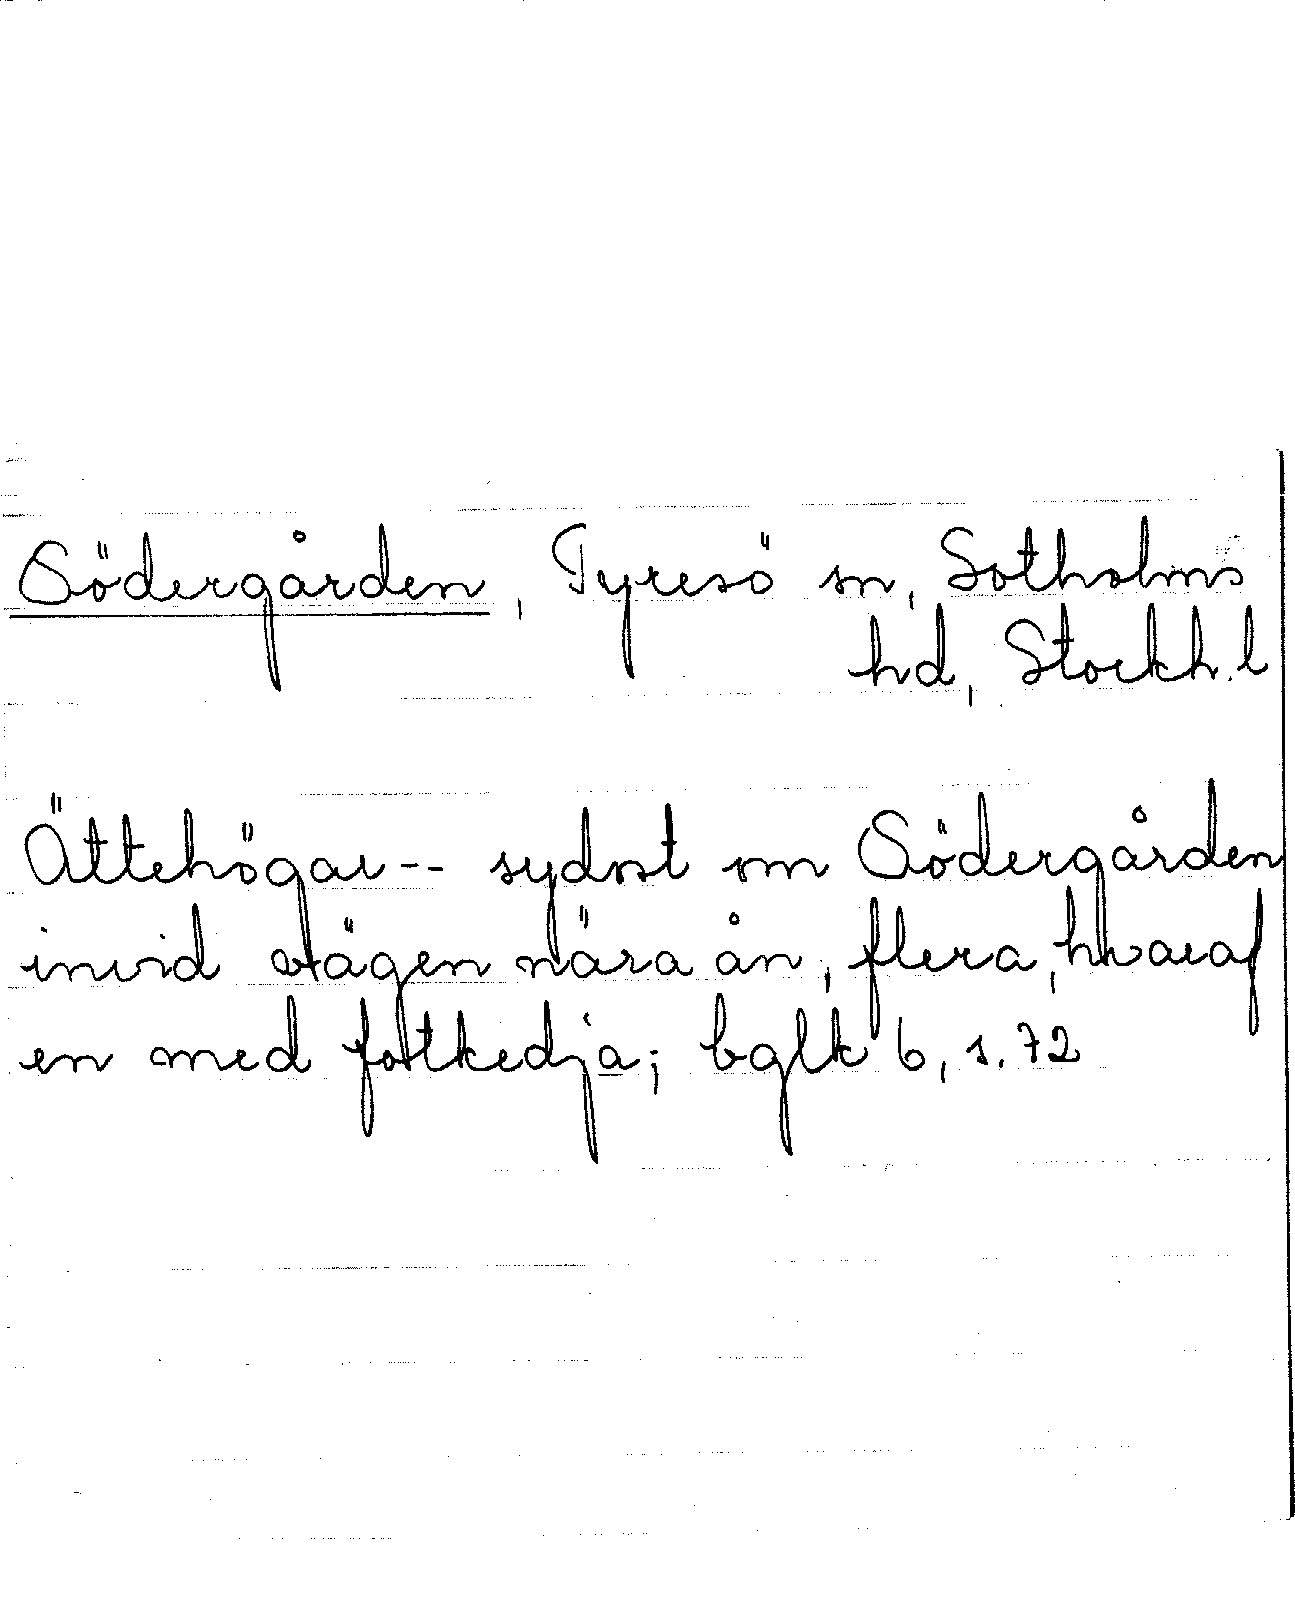 Södergården, Tyresö sn, Sotholms
hd, Stockh. l
Ättehögar -- sydost om Södergården
invid vägen nära ån, flera, hvaraf
en med fotkedja; bglk 6, s. 72